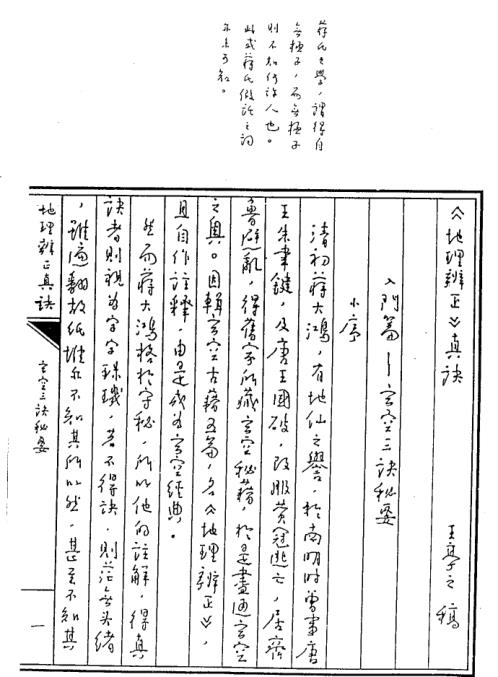 蔣氏之學，謂得自
無極子，而無極子
則不知何許人也。
此或蔣氏假託之詞
亦未可知。
《地理辨正》真訣
王亭之稿
入門篇——玄空三訣秘要
小序
清初蔣大鴻，有地仙之譽，於南明時曾事唐
王朱聿鍵，及唐王國破，改服黃冠逃亡，居齊
魯避亂，得舊家所藏玄空秘籍，於是盡通玄空
之奧。因輯玄空古籍五篇，名《地理辨正》，
且自作註釋，由是成為玄空經典。
然而蔣大鴻格於守秘，所以他的註解，得真
訣者則視為字字珠璣，若不得訣，則茫無頭緒
，雖遍翻故紙堆亦不知其所以然，甚至不知其
地理辨正真訣
玄空三訣秘要
一